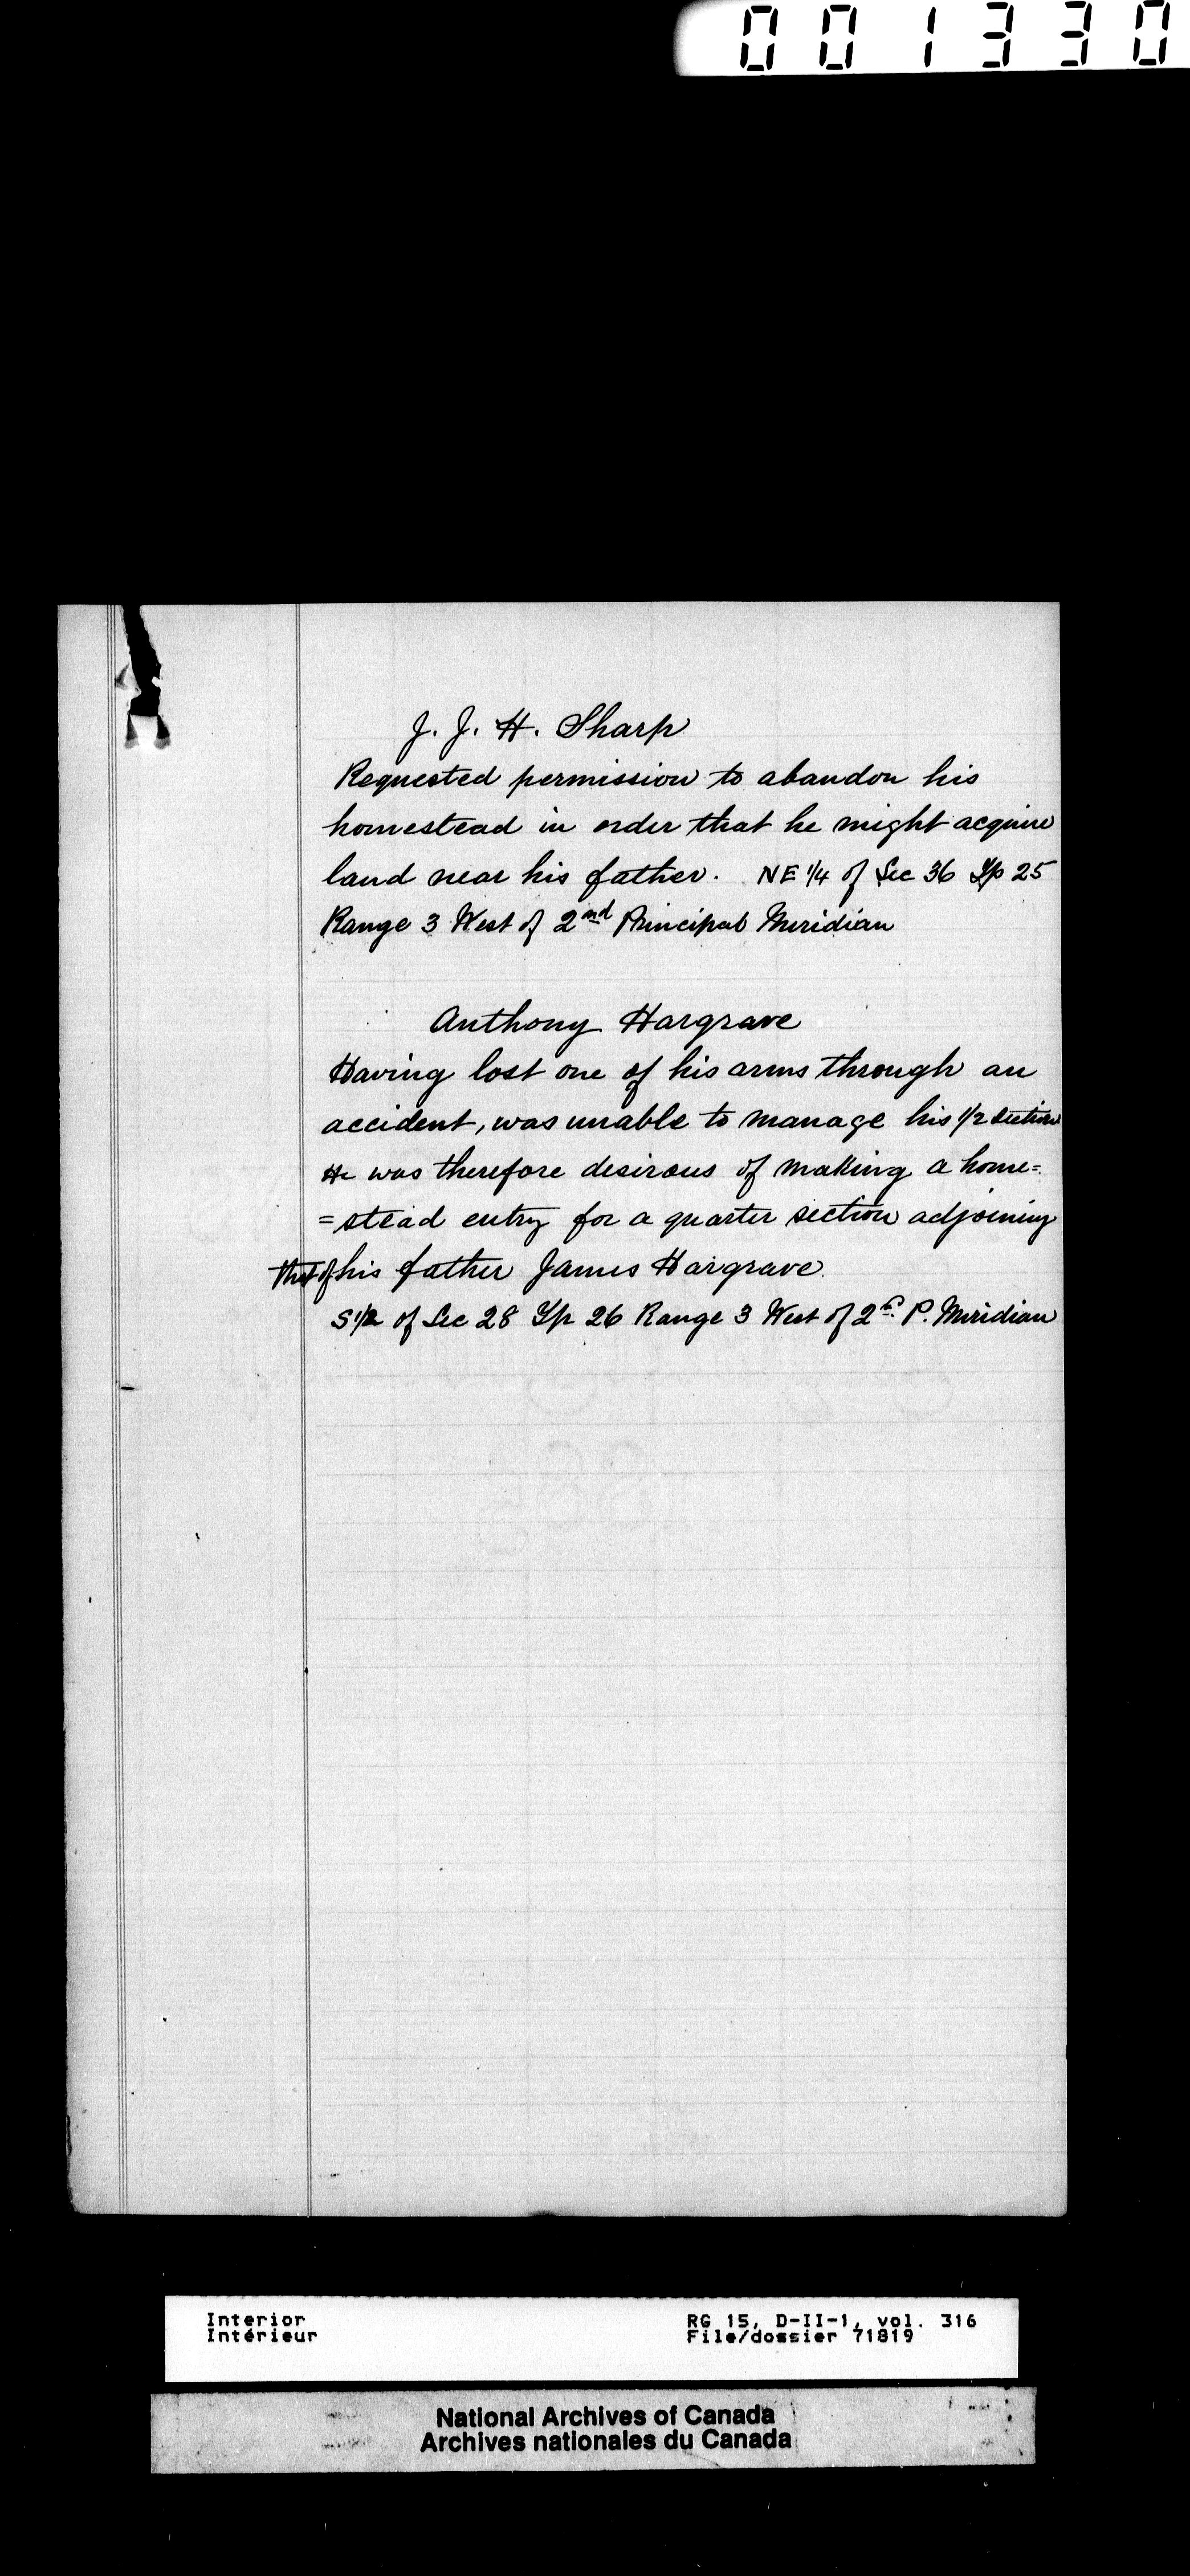 001330
J. J. H. Sharp
Requested permission to abandon his
homestead in order that he might acquire
land near his father. NE 1/4 of Sec 36 Tp 25
Range 3 West of 2nd Principal Meridian
Anthony Hargrave
Having lost one of his arms through an
accident, was unable to manage his 1/2 section
He was therefore desirous of making a home=
=stead entry for a quarter section adjoining
that of his father James Hargrave.
S 1/2 of Sec 28 Tp 26 Range 3 West of 2nd P. Meridian
Interior
Intérieur
RG 15, D-II-1, vol. 316
File/dossier 71819
National Archives of Canada
Archives nationales du Canada